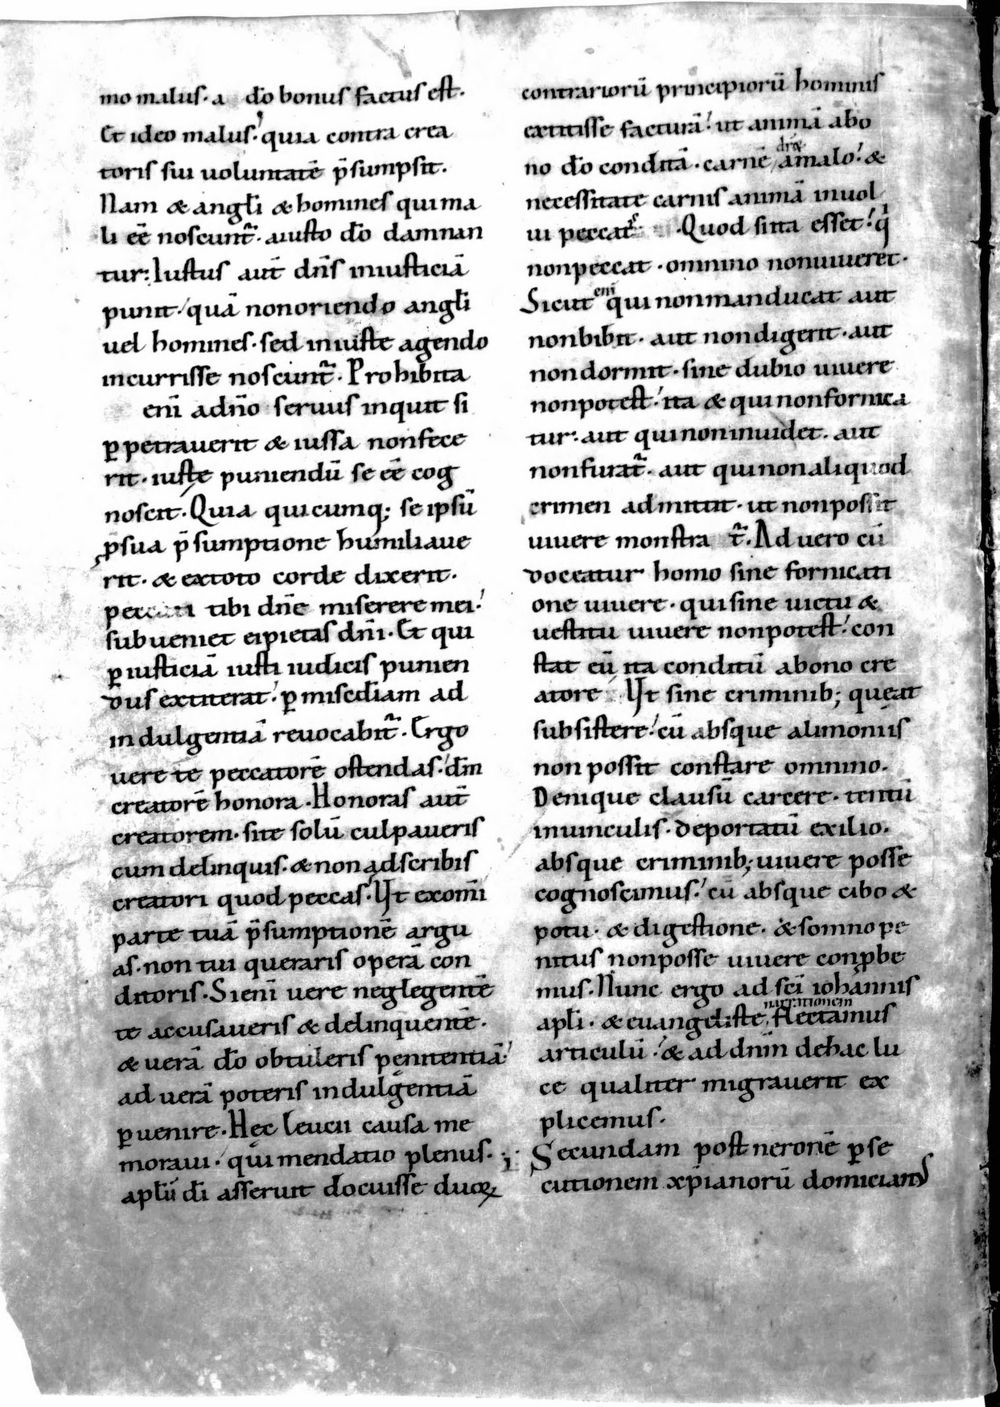 mo malus· a dō bonus factus est·
Et ideo malus· quia contra crea
toris sui uoluntatē p̄sumpsit·
Nam & angłi & homines qui ma
li eē noscunt̄· a iusto dō damnan
tur: Iustus aut̄ dn̄s iniusticiā
punit· quā non oriendo angłi
uel homines· sed iniuste agendo
incurrisse noscunt̄· Prohibita
eni adnō seruus inquit si
ꝑpetrauerit & iussa non fece
rit· iuste puniendū se eē cog
noscit· Quia quicumq; se ipsū
p̄ sua p̄sumptione humiliaue
rit· & ex toto corde dixerit·
peccaui tibi dn̄e miserere mei·
subueniet ei pietas dn̄i· Et qui
ꝑ iusticiā iusti iudicis punien
dus extiterat· ꝑ misedīam ad
indulgentiā reuocabit̄· Ergo
uere te peccatorē ostendas· dm̄
creatorē honora· Honoras aut̄
creatorem· si te solū culpaueris
cum delinquis· & non adscribis
creatori quod peccas· Vt ex om̄i
parte tuā p̄sumptionē argu
as· non tui queraris operā con
ditoris· Si eni uere neglegentē
te accusaueris & delinquentē·
& uerā dō obtuleris penitentiā·
ad uerā poteris indulgentiā
ꝑuenire· Hec leucii causa me
moraui· qui mendatio plenus·
apłm di asserunt docuisse duoꝝ
contrariorū principiorū hominis
extitisse facturā· ut animā abo
no dō conditā· carnē a malo· &
necessitate carnis animā inuol
ui peccatę· Quod si ita esset· q̇
non peccat· omnino non uiueret·
Sicut eni qui non manducat aut
non bibit· aut non digerit· aut
non dormit· sine dubio uiuere
non potest· ita & qui non fornica
tur· aut qui non inuidet· aut
non furat̄· aut qui non aliquod
crimen admittit· ut non possit
uiuere monstrat̄· At uero cū
doceatur homo sine fornicati
one uiuere· qui sine uictu &
uestitu uiuere non potest· con
stat eū ita conditū a bono cre
atore Vt sine criminib; queat
subsistere· cū absque alimoniis
non possit constare omnino·
Denique clausū carcere· tentū
in uinculis· deportatū exilio·
absque criminib; uiuere posse
cognoscimus· cū absque cibo &
potu· & digestione· & somno pe
nitus non posse uiuere conꝑbe
mus· Nunc ergo ad sc̄i iohannis
apłi· & euangeliste narrationem flectamus
articulū· & ad dnm̄ de hac lu
ce qualiter migrauerit ex
plicemus·
Secundam post neronē ꝑse
cutionem xp̄ianorū domicianus